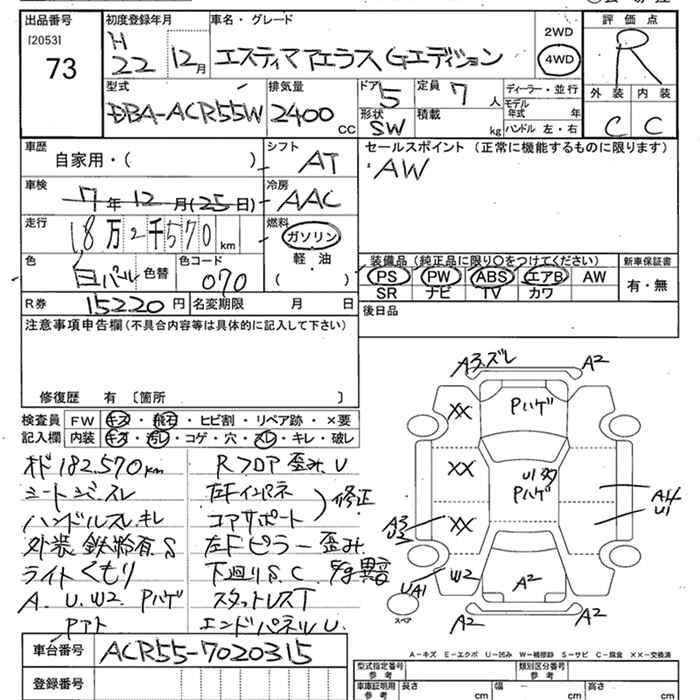 出品番号 初度登録年月 車名・グレード 評価点
[2053] H 2WD
73 22 12月 エスティマ アエラス Gエディション 4WD R
型式 排気量 ドア 定員 ディーラー・並行 外装 内装
DBA-ACR55W 2400 CC 5 7人 モデル年式 年
形状 SW 積載 kg ハンドル 左・右 C C
車歴 シフト セールスポイント (正常に機能するものに限ります)
自家用・( ) AT ・AW
車検 冷房
7年12月(25日) AAC
走行 燃料
18万2千570km ガソリン
軽・油 装備品 (純正品に限り〇をつけてください) 新車保証書
色 色替 色コード ・
白パール 070 ( ) PS PW ABS エアB AW 有・無
SR ナビ TV カワ
R券 15220円 名変期限 月 日 後日品
注意事項申告欄 (不具合内容等は具体的に記入して下さい)
修復歴 有 〔箇所 〕
検査員 FW キズ・飛石・ヒビ割・リペア跡・×要
記入欄 内装 キズ・汚レ・コゲ・穴・スレ・キレ・破レ
オド 182.570km Rフロア 歪み.U
シートシミ.スレ 左Fインパネ
ハンドルスレ.キレ コアサポート ) 修正
外装 鉄粉有.S 左Fピラー 歪み.
ライトくもり 下廻りS.C.
A.U.W2.Pハゲ スタットレスT
Pアト エンドパネルU.
A3.ズレ A2
XX Pハゲ
XX U1 Pハゲ A4 U1
A3 XX
UA1 W2 A2
スペア A2 A2
車台番号 ACR55-7020315
A−キズ E−エクボ U−凹み W−補修跡 S−サビ C−腐食 ××−交換済
登録番号
型式指定番号 参考 類別区分番号 参考
車車証明用 参考 長さ cm 幅 cm 高さ cm